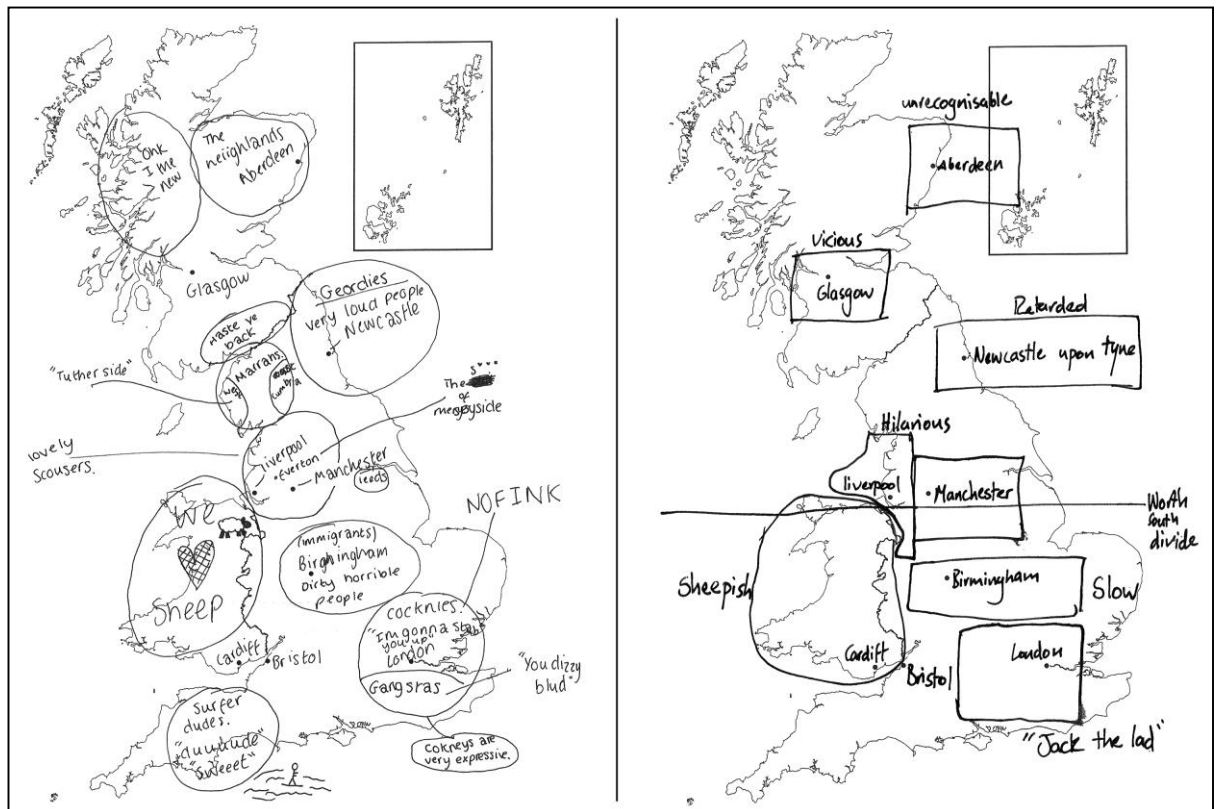 Ohk
I the
new
The
nerighlands
Aberdeen
Glasgow
Geordies
very loud people
Newcastle
Haste ye
back
"Tuther side"
Marrans.
West
east
cumbria
The s***
of
merseyside
lovely
scousers.
liverpool
Everton
Manchester
leeds
NOFINK
We
Sheep
(immigrants)
Birmingham
Dirty horrible
people
cocknies.
"I'm gonna stab
you up"
London
Gangstas
"You dizzy
blud"
Cardiff
Bristol
Surfer
dudes.
"duuudude"
"sweeet"
Cokneys are
very expressive.
unrecognisable
Aberdeen
Vicious
Glasgow
Retarded
Newcastle upon tyne
Hilarious
liverpool
Manchester
North
south
divide
Sheepish
Birmingham
Slow
Cardiff
Bristol
London
"Jack the lad"